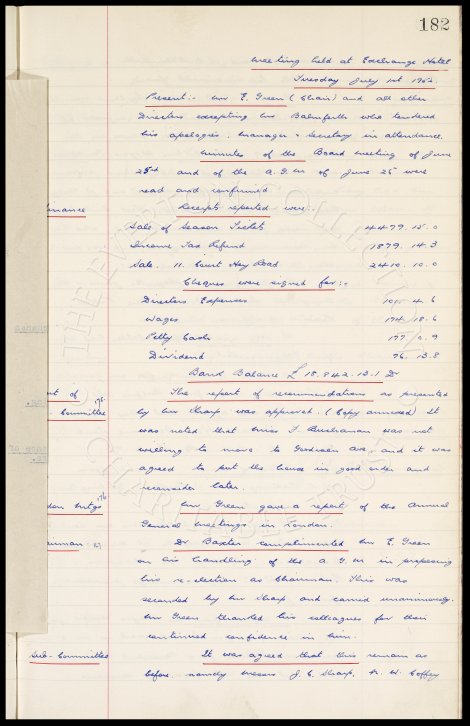 182
Meeting held at Exchange Hotel
Tuesday July 1st 1952
Present:- Mr E. Green (Chair) and all other
Directors excepting Mr Balmforth who tendered
his apologies. Manager & Secretary in attendance.
Minutes of the Board Meeting of June
23rd and of the A.G.M of June 25 were
read and confirmed
Receipts reported were:-
Sale of Season Tickets 4479. 15. 0
Income Tax Refund 1879. 14. 3
Sale. 11. Court Hey Road 2410. 10. 0
Cheques were signed for:-
Directors Expenses 4. 6
Wages 174. 18. 6
Petty Cash 177. 0. 9
Dividend 76. 13. 8
Bank Balance £ 18.842. 13. 1 Dr
The report of recommendations as presented
by Mr Sharp was approved. (Copy annexed) It
was noted that Buchanan was not
willing to move to Goodison Ave, and it was
agreed to put the house in good order and
reconsider later.
Mr Green gave a report of the Annual
General Meetings in London.
Dr Baxter complimented Mr E. Green
on his handling of the A.G.M in proposing
his re-election as Chairman. This was
seconded by Mr Sharp and carried unanimously.
Mr Green thanked his colleagues for their
continued confidence in him.
Sub-Committees
It was agreed that this remain as
before. namely Messrs. J. C. Sharp, W. Coffey
THE EVERTON COLLECTION
CHARITABLE TRUST